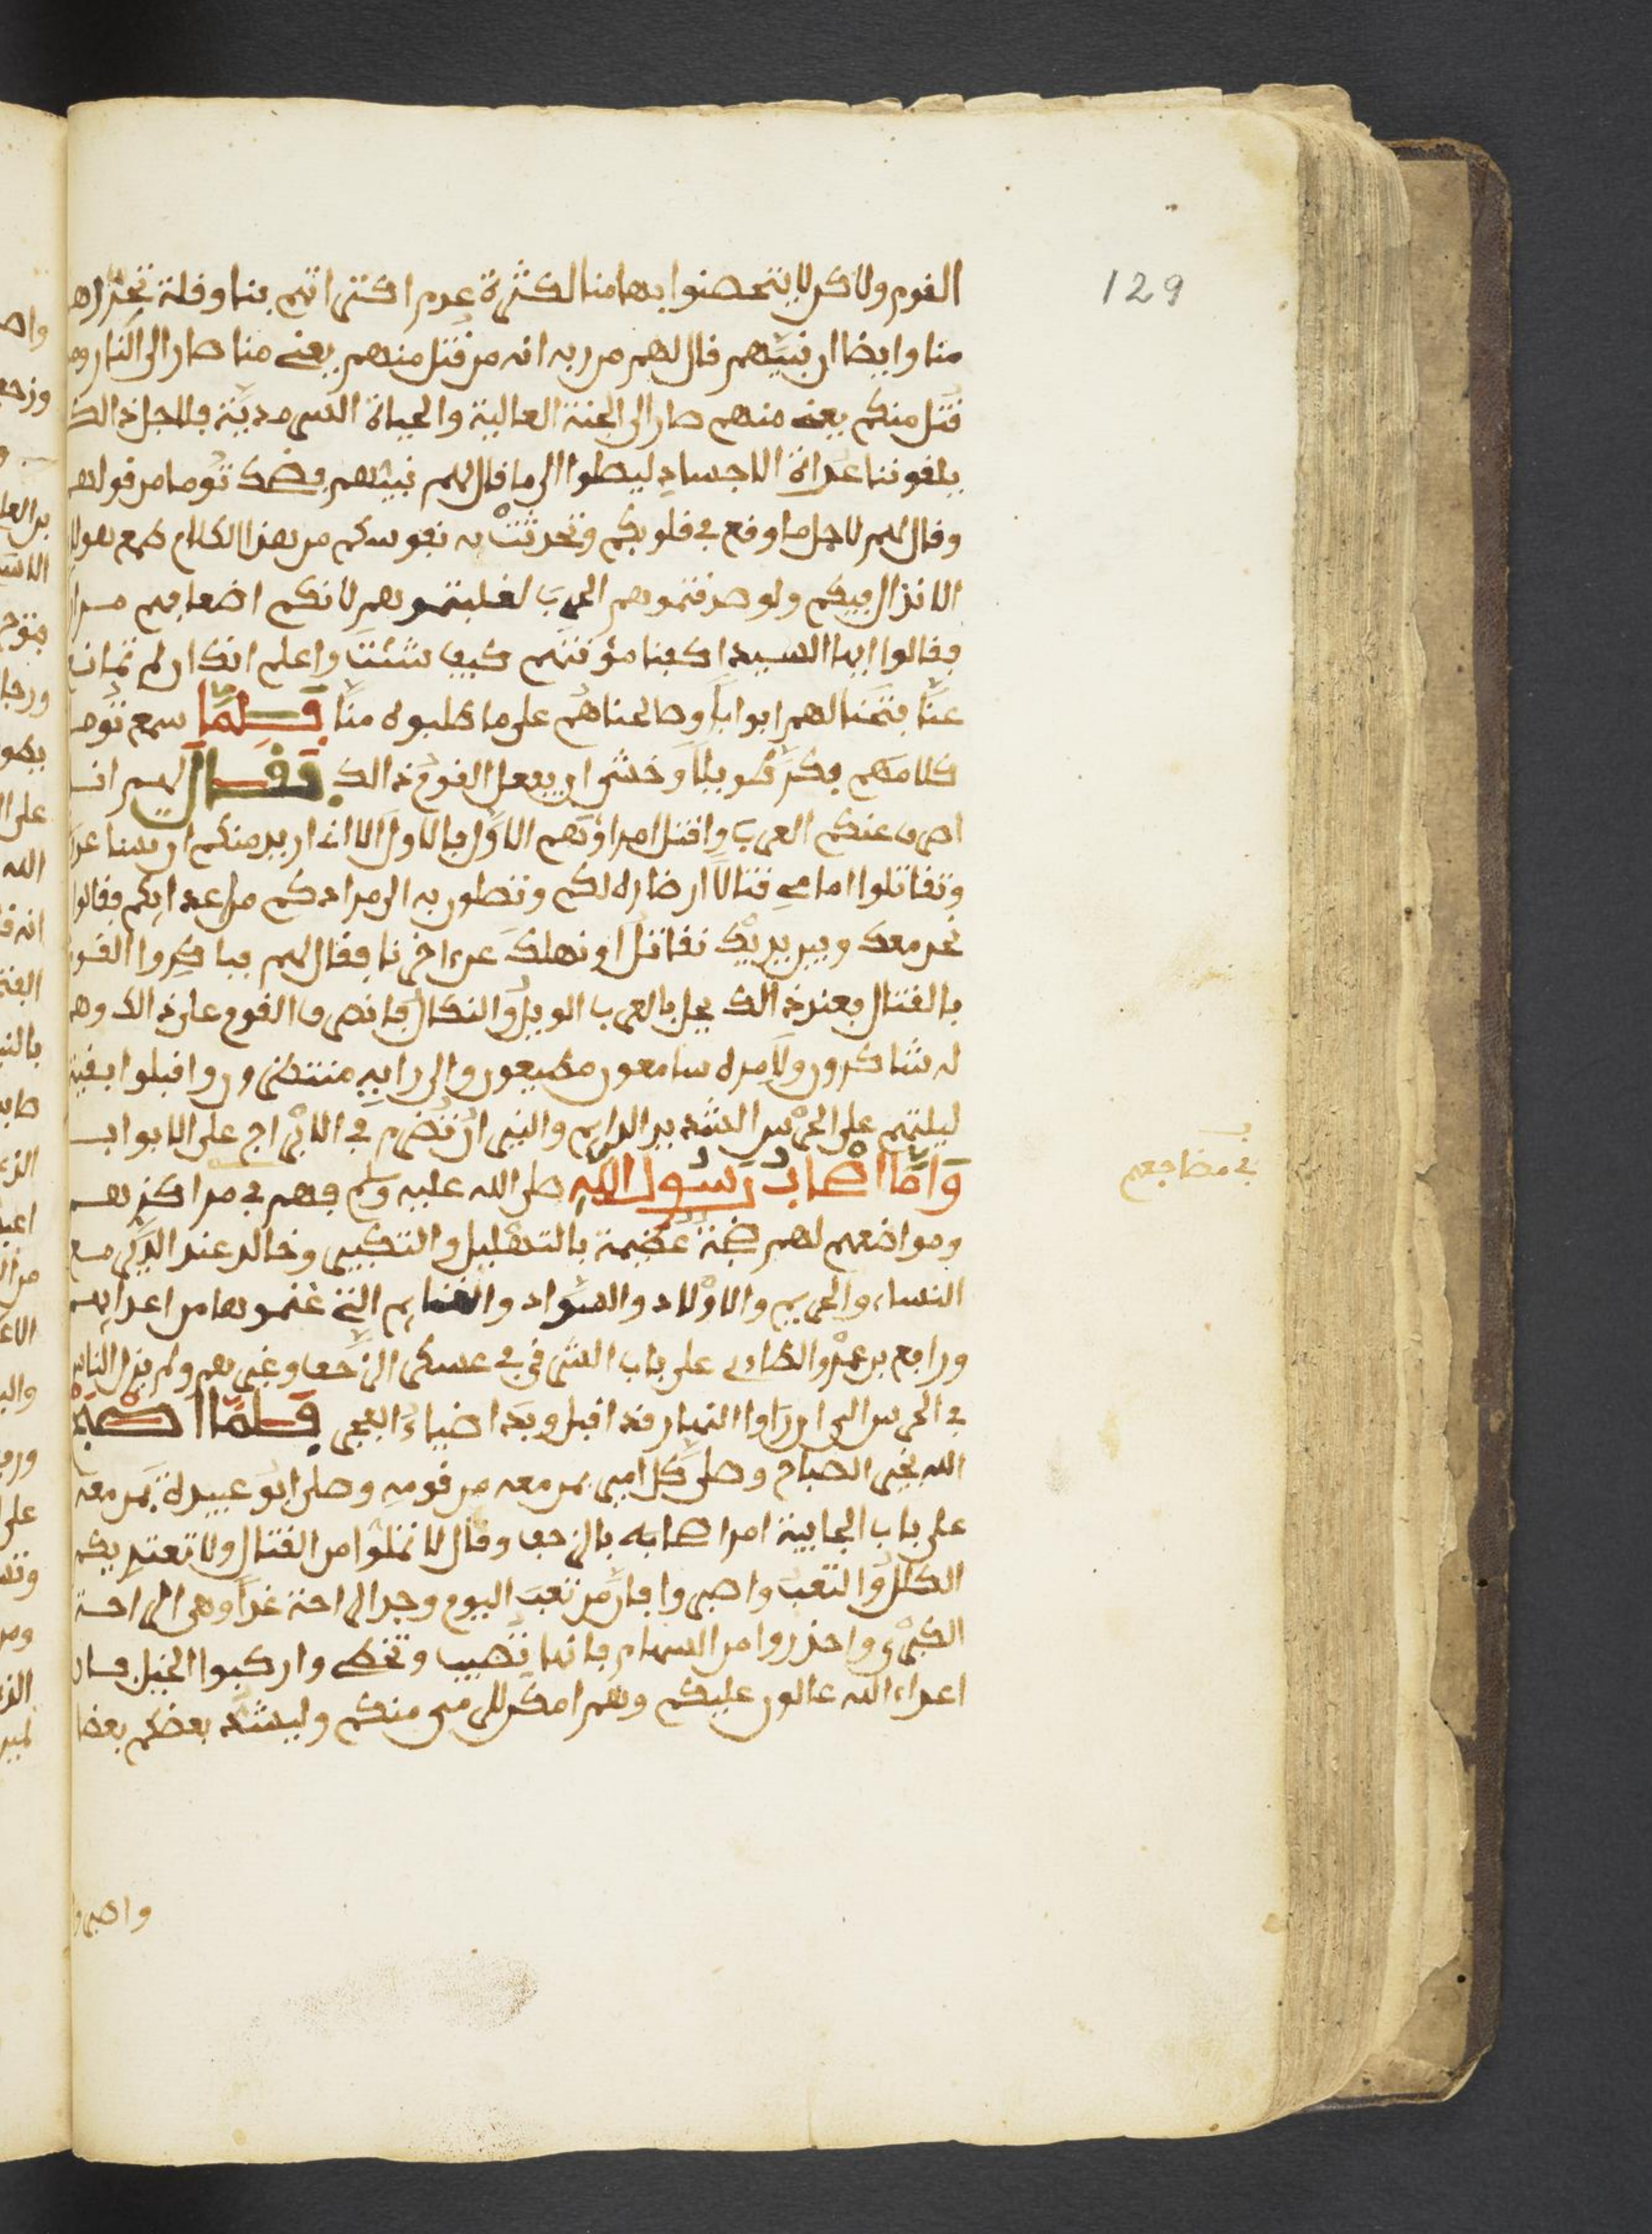 129
القوم ولاكن لا يتحصنوا بها منا لكثرة عدم اكتراثهم بنا وقلة
منا وايضا ان نبيهم قال لهم من ربه انه من قتل منهم يعني منا صار الى النار ومن
قتل منكم يعني منهم صار الى الجنة العالية والحياة السرمدية فلاجل ذالك
يلقوننا عراة الاجساد ليصلوا الى ما قال لهم نبيهم فضحك توما من قولهم
وقال لهم لاجل ما وقع في قلوبكم وتحدثت به نفوسكم من هذا الكلام طمع هولا
الانذال فيكم ولو صدقتموهم الحرب لغلبتموهم لانكم اضعافهم مرارا
فقالوا ايها السيد اكفنا مؤنتهم كيف شئت واعلم انك ان لم تمانع
عنا فتحنا لهم ابوابا وصالحناهم على ما طلبوه منا فلما سمع توما
كلامهم فكر طويلا وخشى ان يفعل القوم ذالك فقال لهم انا
اصرف عنكم العرب واقتل امراؤهم الاول بالاول الا انى اريد منكم
وتقاتلوا امامي قتالا ارضاه لكم وتصلون به الى مرادكم من اعدايكم فقالوا
نحن معك وبين يديك نقاتل او نهلك عن اخرنا فقال لهم فباكروا القوم
بالقتال فعند ذالك يحل بالعرب الويل والنكال فانصرف القوم على ذالك وهم
له شاكرون ولامره سامعون مطيعون والى رايه منتظرون واقبلوا بقية
ليلتهم على الحرس الشديد الدايم والنيران تضرم في الابراج على الابواب
واما اصحاب رسول الله صلى الله عليه وسلم فهم في مراكزهم
في مضاجعهم
ومواضعهم لهم ضجة عظيمة بالتهليل والتكبير وخالد عند الدير مع
النساء والحريم والاولاد والسواد والغنايم التي غنموها من اعدايهم
ورافع بن عمرو الطاءى على باب الشرقي في عسكر الزحف وغيرهم ولم يزل الناس
في الحرس الى ان راوا النهار قد اقبل وبدا ضياء الفجر فلما اصبح
الله بخير الصباح وصلى كل امير بمن معه من قومه وصلى ابو عبيدة بمن معه
على باب الجابية امر اصحابه بالزحف وقال لا تملوا من القتال ولا
الكلل والتعب واصبروا فان من تعب اليوم وجد الراحة غدا وهي الراحة
الكبرى واحذروا من السهام فانها تصيب وتخطى واركبوا الخيل فان
اعداء الله عالون عليكم وهم امكن للرمى منكم وليشد بعضكم بعضا
واصبروا